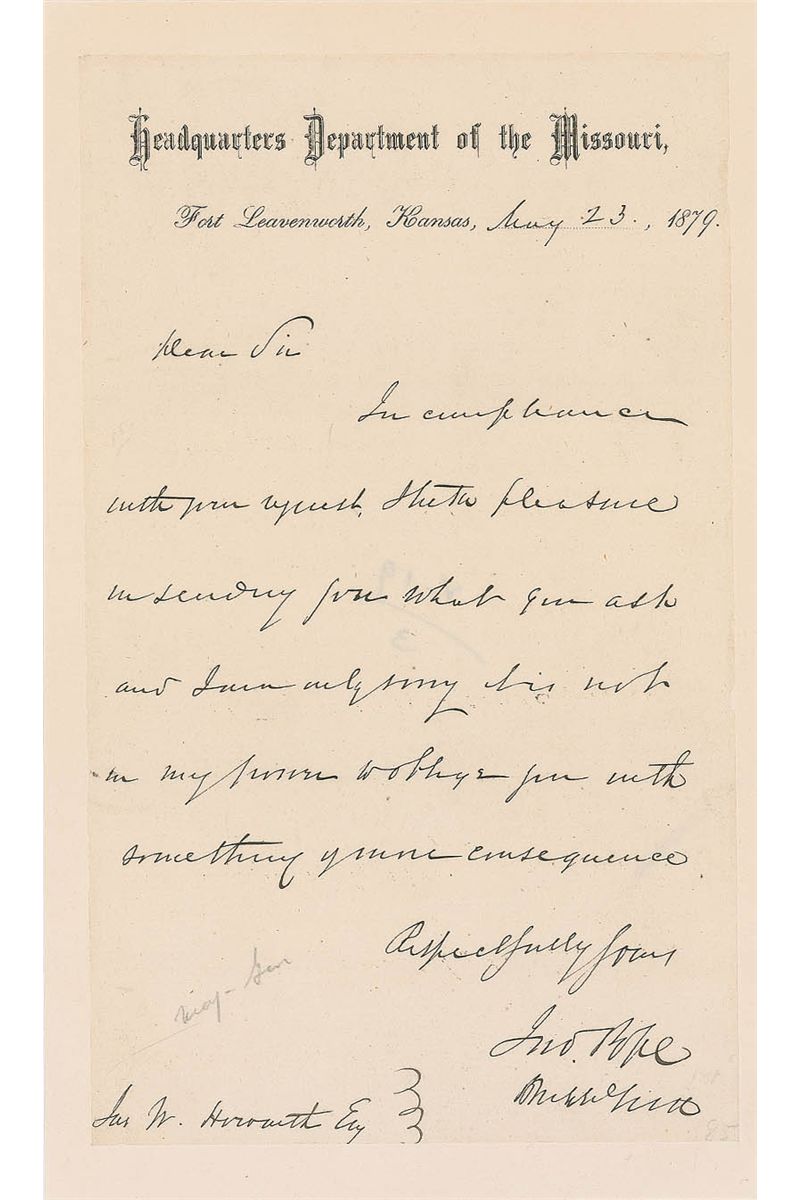 Headquarters Department of the Missouri,
Fort Leavenworth, Kansas, May 23., 1879.
Dear Sir
In compliance
with your request, I take pleasure
in sending you what you ask
and I am only sorry it is not
in my power to oblige you with
something of more consequence
Respectfully yours
Jno. Pope
Maj-Gen
Jas W. Horwarth Esq